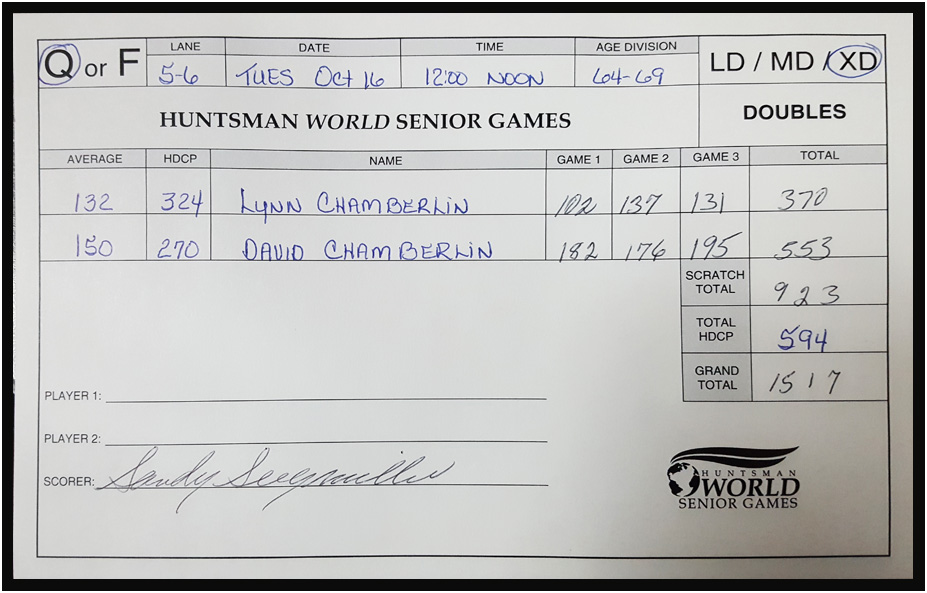 Q or F LANE DATE TIME AGE DIVISION LD / MD / XD
5-6 TUES Oct 16 12:00 NOON 64-69
HUNTSMAN WORLD SENIOR GAMES DOUBLES
AVERAGE HDCP NAME GAME 1 GAME 2 GAME 3 TOTAL
132 324 LYNN CHAMBERLIN 102 137 131 370
150 270 DAVID CHAMBERLIN 182 176 195 553
SCRATCH
TOTAL 923
TOTAL
HDCP 594
GRAND
TOTAL 1517
PLAYER 1:
PLAYER 2:
SCORER: Sandy
HUNTSMAN
WORLD
SENIOR GAMES